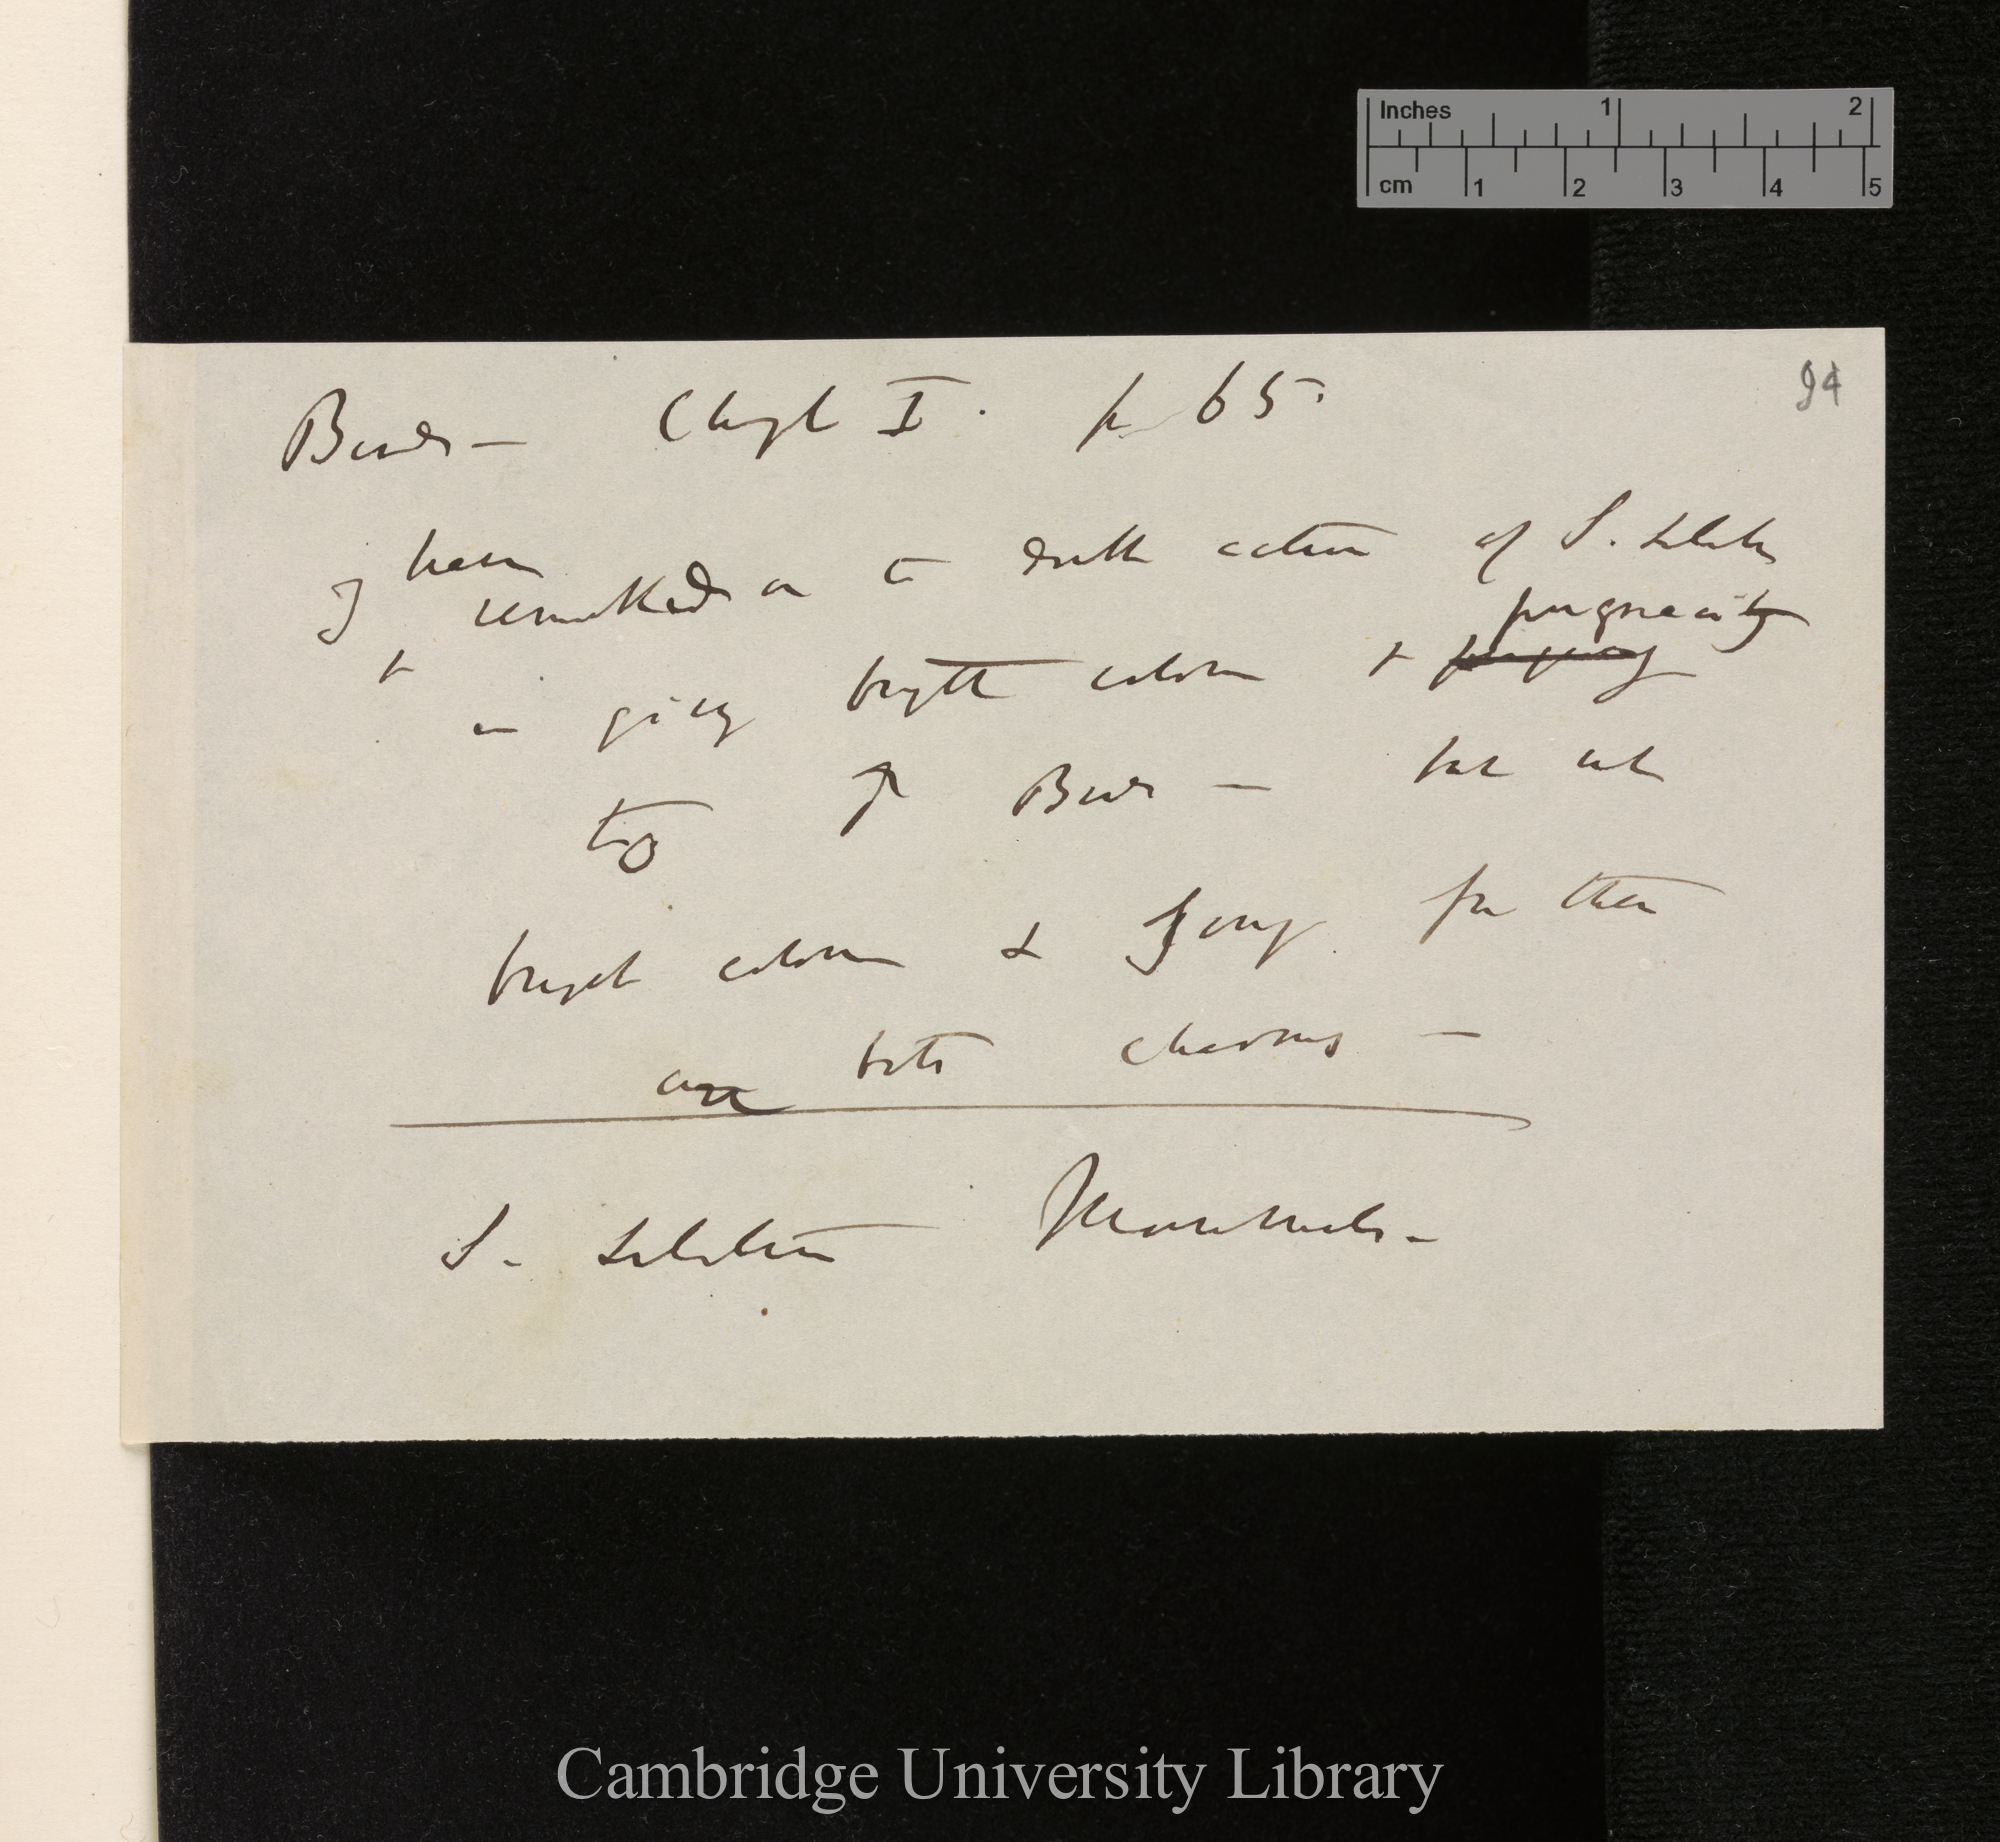 Inches 1 2
cm 1 2 3 4 5
94
Birds — Chapt I. p 65.
I have remarked on the double action of S. Selection
in giving bright colours & pugnacity
to ♂ Birds — but not
bright colours & song for these
are both charms —
S. Selection Mammals —
Cambridge University Library